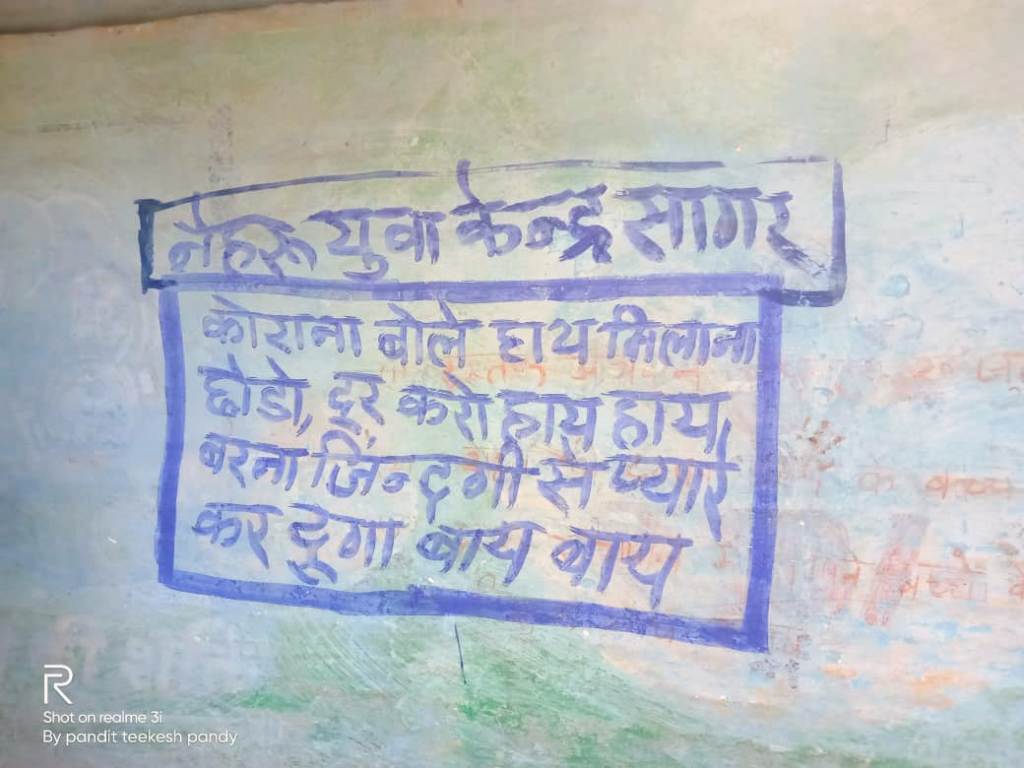 नेहरू युवा केन्द्र सागर
कोराना बोले हाथ मिलाना
छोडो, दूर करो हाय हाय,
बरना जिंन्दगी से प्यारे
कर दूगा बाय बाय
Shot on realme 3i
By pandit teekesh pandy